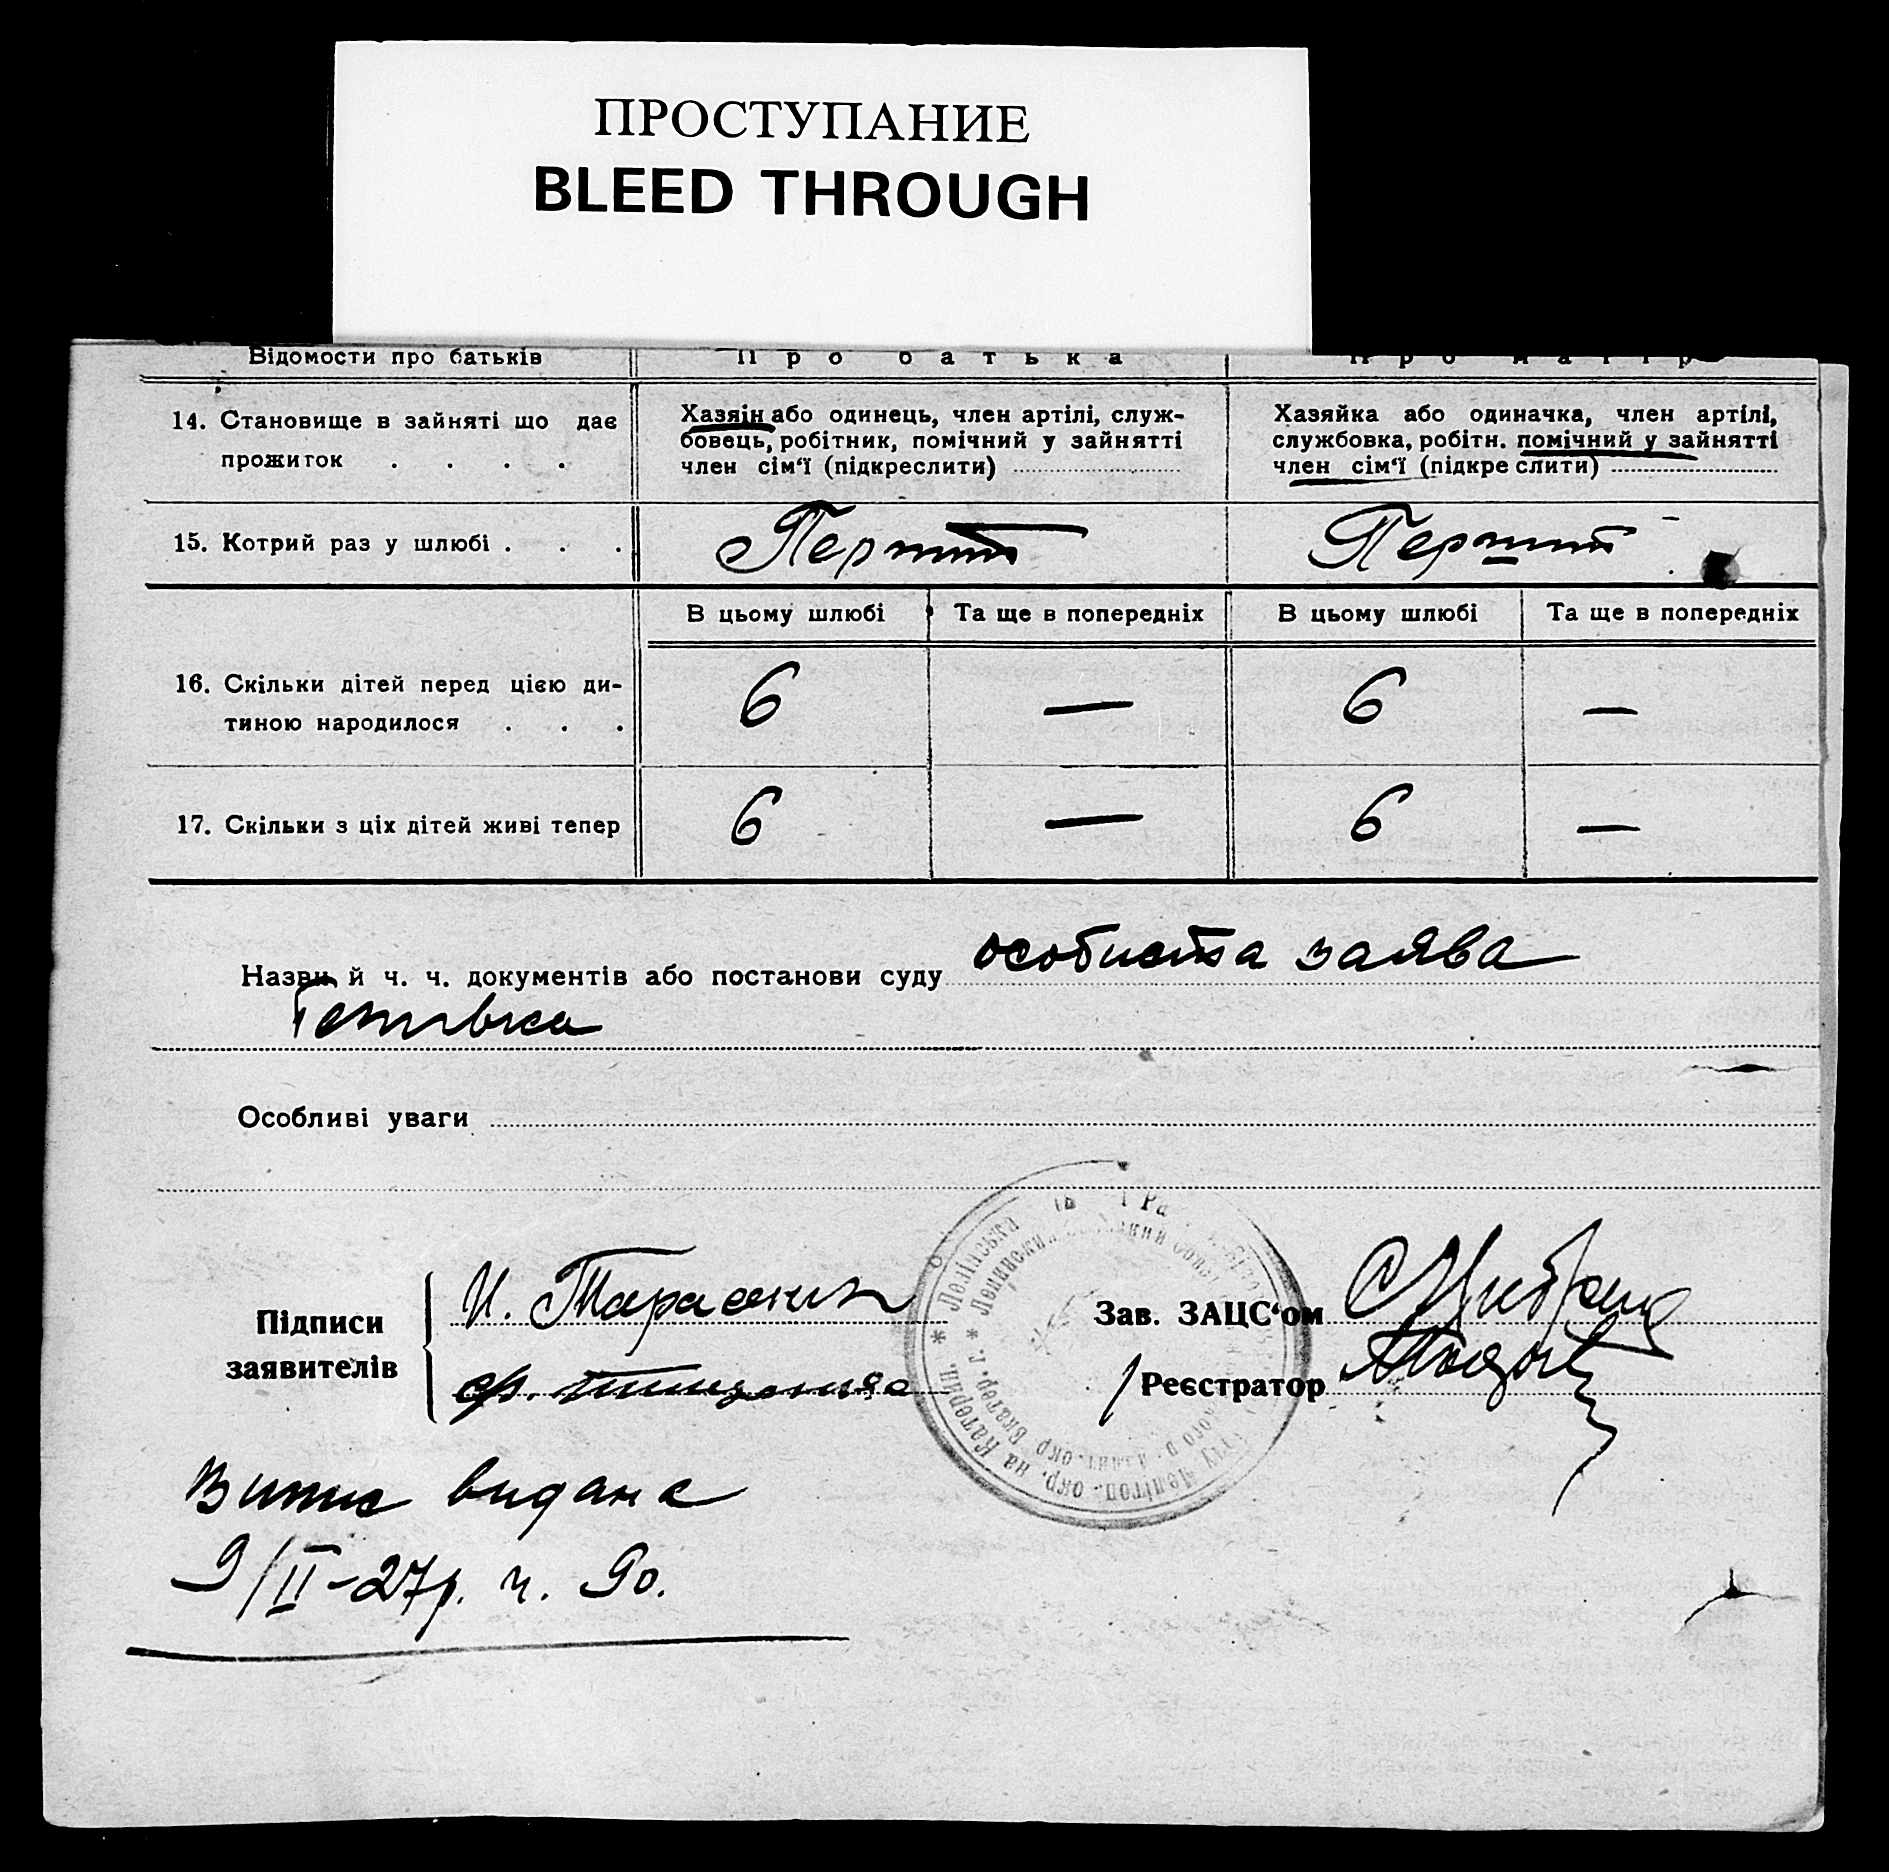 ПРОСТУПАНИЕ
BLEED THROUGH
Відомости про батьків Про батька
14. Становище в зайняті що дає прожиток . . . .
Хазяін або одинець, член артілі, служ-
бовець, робітник, помічний у зайнятті
член сім'ї (підкреслити)
Хазяйка або одиначка, член артілі,
службовка, робітн. помічний у зайнятті
член сім'ї (підкреслити)
15. Котрий раз у шлюбі . . . Перший Перший
В цьому шлюбі Та ще в попередніх В цьому шлюбі Та ще в попередніх
16. Скільки дітей перед цією ди-
тиною народилося . . . 6 — 6 —
17. Скільки з ціх дітей живі тепер 6 — 6 —
Назви й ч. ч. документів або постанови суду особиста заява
Особливі уваги
Підписи
заявителів
И.
Зав. ЗАЦС'ом
Реєстратор
Випис видана
9/II-27р. ч. 90.